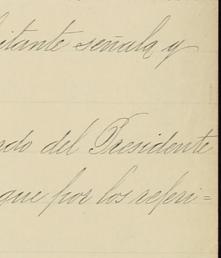 itante señala y
ndo del Presidente
que por los referi=